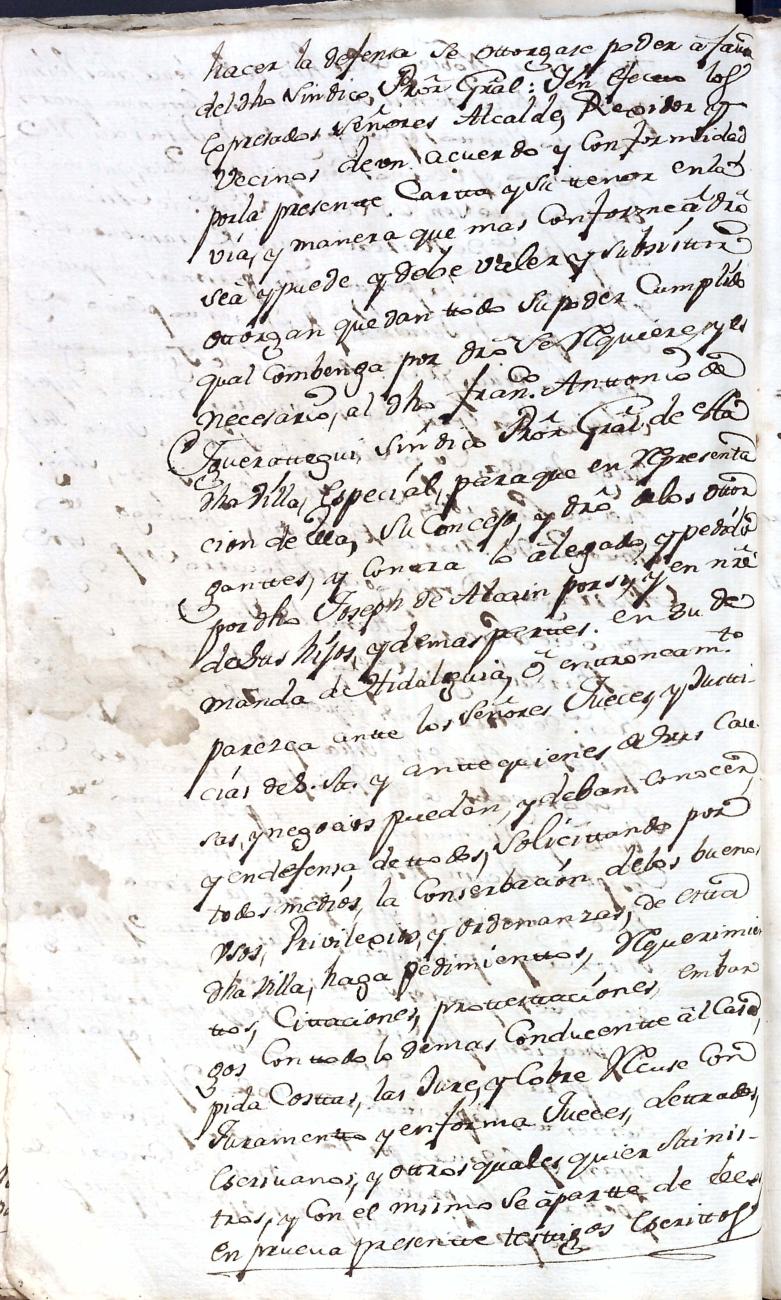 hacer la defensa se ottorgase poder â favor
del dho Sindico, Pro.r Gral: Y en efecto los
Expresados Señores Alcalde, Rexidor y
Vecinos de un acuerdo y Conformidad
por la presente Cartta y su ttenor en la
via, y manera que mas Conforme â dro
sea y puede y debe valer y subsistir
ottorgan que dan ttodo su poder Cumplido
qual Combenga por dro se rrequiere, y es
necesario, al dho Fran.co Anttonio de
Jauerattegui, Sindico Pro.r Gral, de esta
dha Villa, Especial, para que en rrepresenta
cion de ella, su Concejo, y dro de los ottor
ganttes, y contra lo alegado, y pedido
por dho Joseph de Alcain por si, y en nre
de sus hijos, y demas parttes. en su de
manda de Hidalguia, ô entroncam.to
parezca antte los Señores Jueces, y Justti-
cias de S. M. y antte quienes de sus Cau
sas, y negocios puedan, y deban Conocer,
y en defensa de ttodos, Solicittando por
ttodos medios, la Conserbacion de los buenos
vsos, Privilexios, y ordenanzas, de estta
dha Villa, haga pedimienttos, rrequerimien
ttos, Cittaciones, prottesttaciones, embar
gos Con ttodo lo demas Conducentte âl Caso,
pida Costtas, las Jure, y Cobre rrecuse Con
Juramentto y en forma Jueces, Lettrados,
Escriuanos, y ottros quales quier Minis-
tros, y Con el mismo se âpartte de ello
en prueua presentte testtigos Escrittos